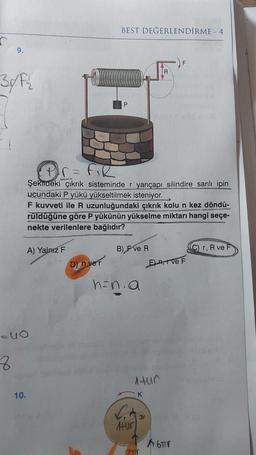 BEST DEĞERLENDİRME - 4
9.
F
R
r
P
Şekildeki çıkrık sisteminde r yarıçapı silindire sarılı ipin
ucundaki P yükü yükseltilmek isteniyor.
F kuvveti ile R uzunluğundaki çıkrık kolu n kez döndü-
rüldüğüne göre P yükünün yükselme miktarı hangi seçe-
nekte verilenlere bağlıdır?
A) Yalnız F
B) F ve R
C) r, R ve F
D) n ve r
E) n, r ve F
h=n.a
10.
1tur
K
1tur
6πr